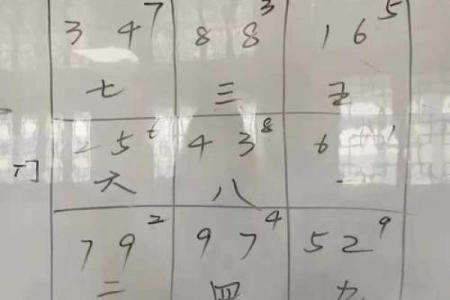 3 4 7 8 8 3 1 6 5
七 三 五
2 5 6 4 3 8 6 1 1
六 八 一
门
7 9 2 9 7 4 5 2 9
二 四 九